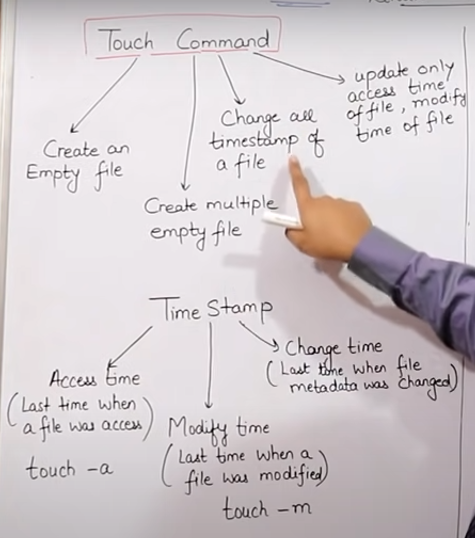 Touch Command
Create an
Empty file
Create multiple
empty file
Change all
timestamp of
a file
update only
access time
of file, modify
time of file
Time Stamp
Access time
(Last time when
a file was access)
touch -a
Modify time
(Last time when a
file was modified)
touch -m
Change time
(Last time when file
metadata was changed)